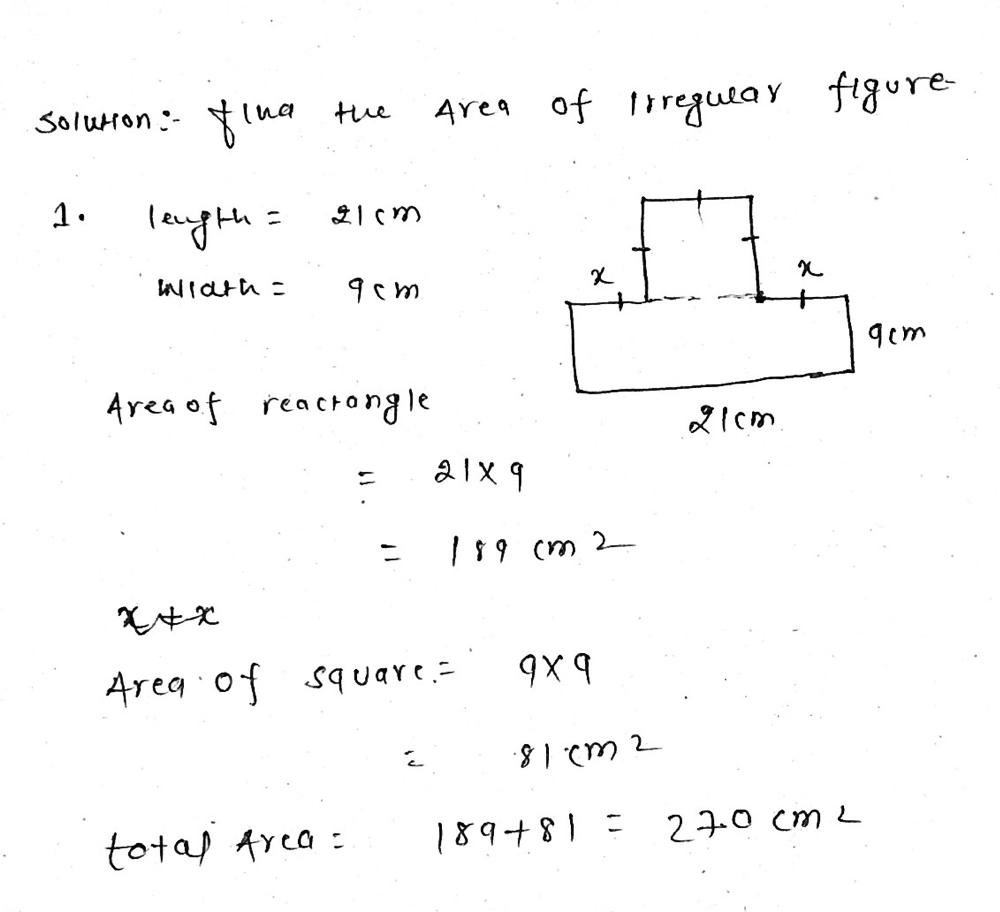 Solution:- find the Area of Irregular figure
1. length = 21cm
width = 9cm
x
x
9cm
21cm
Area of reactangle
= 21x9
= 189 cm2
x+x
Area of square = 9x9
= 81 cm2
total Area = 189+81 = 270 cm2